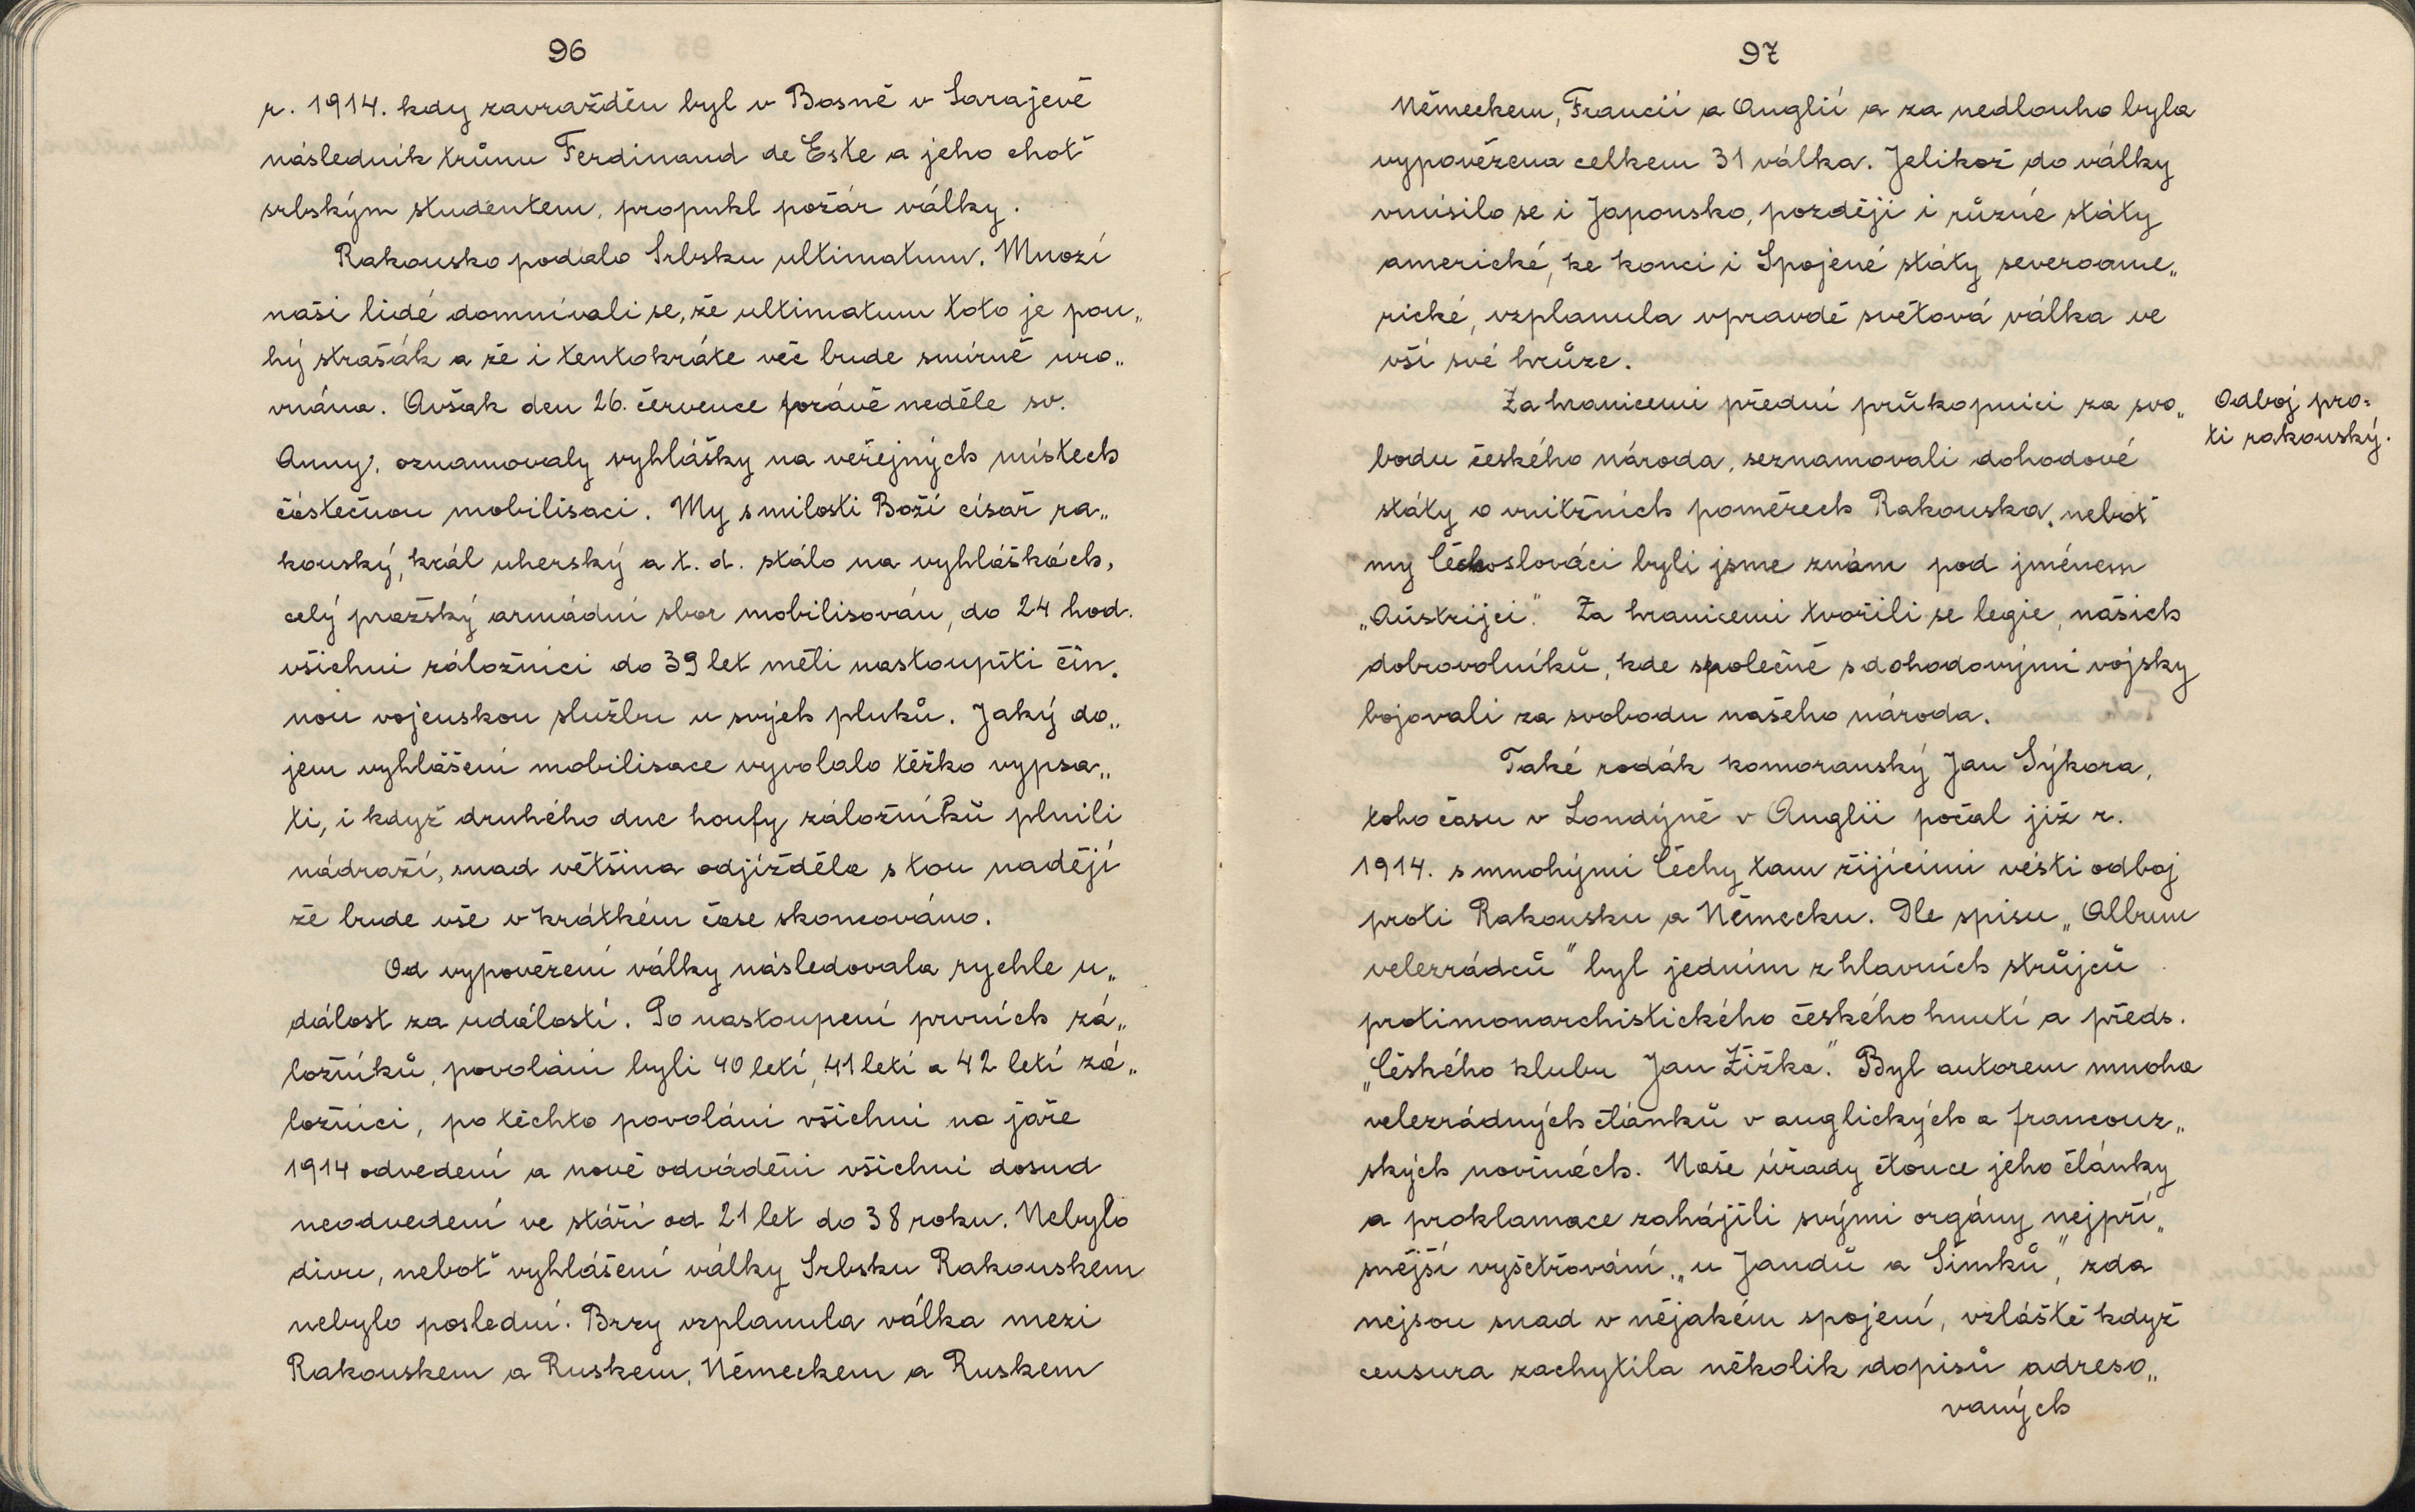 96
r. 1914. kdy zavražděn byl v Bosně v Sarajevě
následník trůnu Ferdinand de Este a jeho choť
srbským studentem, propukl požár války.
Rakousko podalo Srbsku ultimatum. Mnozí
naši lidé domnívali se, že ultimatum toto je pou„
hý strašák a že i tentokráte věc bude smírně uro„
vnána. Avšak den 26. července právě neděle sv.
Anny, oznamovaly vyhlášky na veřejných místech
částečnou mobilisaci. My s milosti Boží císař ra„
kouský, král uherský a t. d. stálo na vyhláškách,
celý pražský armádní sbor mobilisován, do 24 hod.
všichni záložníci do 39 let měli nastoupiti čin„
nou vojenskou službu u svých pluků. Jaký do„
jem vyhlášení mobilisace vyvolalo těžko vypsa„
ti, i když druhého dne houfy záložníků plnili
nádraží, snad většina odjížděla s tou nadějí
že bude vše v krátkém čase skoncováno.
Od vypovězení války následovala rychle u„
dálost za událostí. Po nastoupení prvních zá„
ložníků, povoláni byli 40 letí, 41 letí a 42 letí zá„
ložníci, po těchto povoláni všichni na jaře
1914 odvedení a nově odváděni všichni dosud
neodvedení ve stáří od 21 let do 38 roku. Nebylo
divu, neboť vyhlášení války Srbsku Rakouskem
nebylo poslední. Brzy vzplanula válka mezi
Rakouskem a Ruskem, Německem a Ruskem
97
Německem, Francií a Anglií a za nedlouho byla
vypovězena celkem 31 válka. Jelikož do války
vmísilo se i Japonsko, později i různé státy
americké, ke konci i Spojené státy severoame„
rické, vzplanula vpravdě světová válka ve
vší své hrůze.
Za hranicemi přední průkopníci za svo„
bodu českého národa, seznamovali dohodové
státy o vnitřních poměrech Rakouska, neboť
my Čechoslováci byli jsme znám pod jménem
„Austrijci." Za hranicemi tvořili se legie, našich
dobrovolníků, kde společně s dohodovými vojsky
bojovali za svobodu našeho národa.
Odboj pro=
ti rakouský.
Také rodák komoranský Jan Sýkora,
toho času v Londýně v Anglii počal již r.
1914. s mnohými Čechy tam žijícími vésti odboj
proti Rakousku a Německu. Dle spisu „Album
velezrádců" byl jedním z hlavních strůjců
protimonarchistického českého hnutí a předs.
„Českého klubu Jan Žižka." Byl autorem mnoha
velezrádných článků v anglických a francouz„
ských novinách. Naše úřady čtouce jeho články
a proklamace zahájili svými orgány nejpří„
snější vyšetřování „u Jandů a Šimků", zda
nejsou snad v nějakém spojení, vzláště když
censura zachytila několik dopisů adreso„
vaných